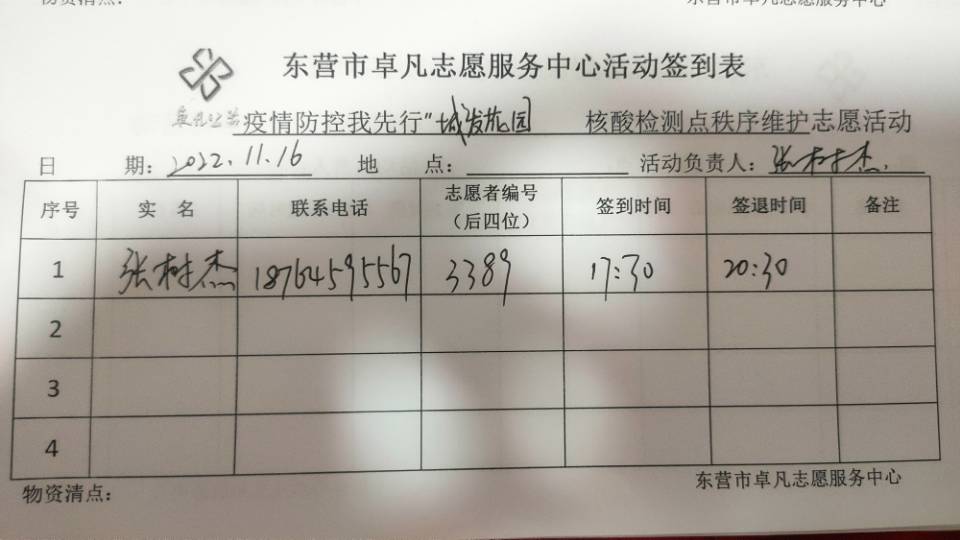 物资清点：
东营市卓凡志愿服务中心
东营市卓凡志愿服务中心活动签到表
卓凡公益
疫情防控我先行"城发花园 核酸检测点秩序维护志愿活动
日 期：2022.11.16 地 点： 活动负责人：张树杰
序号 实 名 联系电话 志愿者编号（后四位） 签到时间 签退时间 备注
1 张树杰 18764595567 3389 17:30 20:30
2
3
4
物资清点：
东营市卓凡志愿服务中心